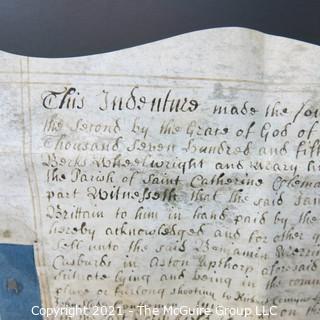 This Indenture made the
the Second by the Grace of God of
Thousand Seven Hundred and
Berks Wheelwright and Mary his
the Parish of Saint Catherine
part Witnesseth that the said
Brittain to him in hand paid by the
hereby acknowledged and for other
Sell unto the said Benjamin
in Aston Upthorp aforesaid
Situate lying and being in the
place or furlong shooting to
on the
Copyright 2021 - The McGuire Group LLC